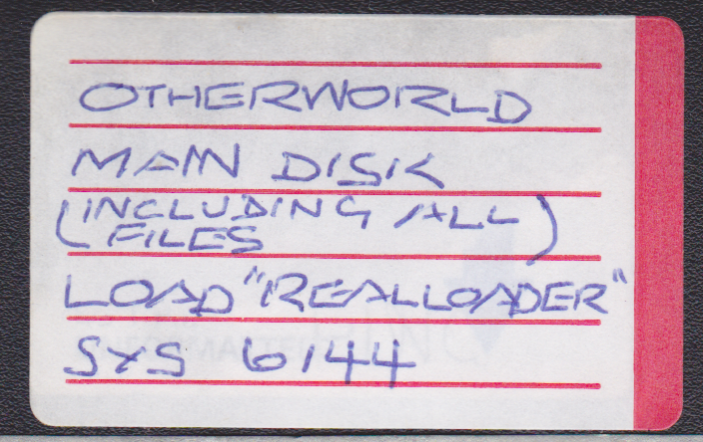 OTHERWORLD
MAIN DISK
(INCLUDING ALL
FILES)
LOAD "REALLOADER"
SYS 6144